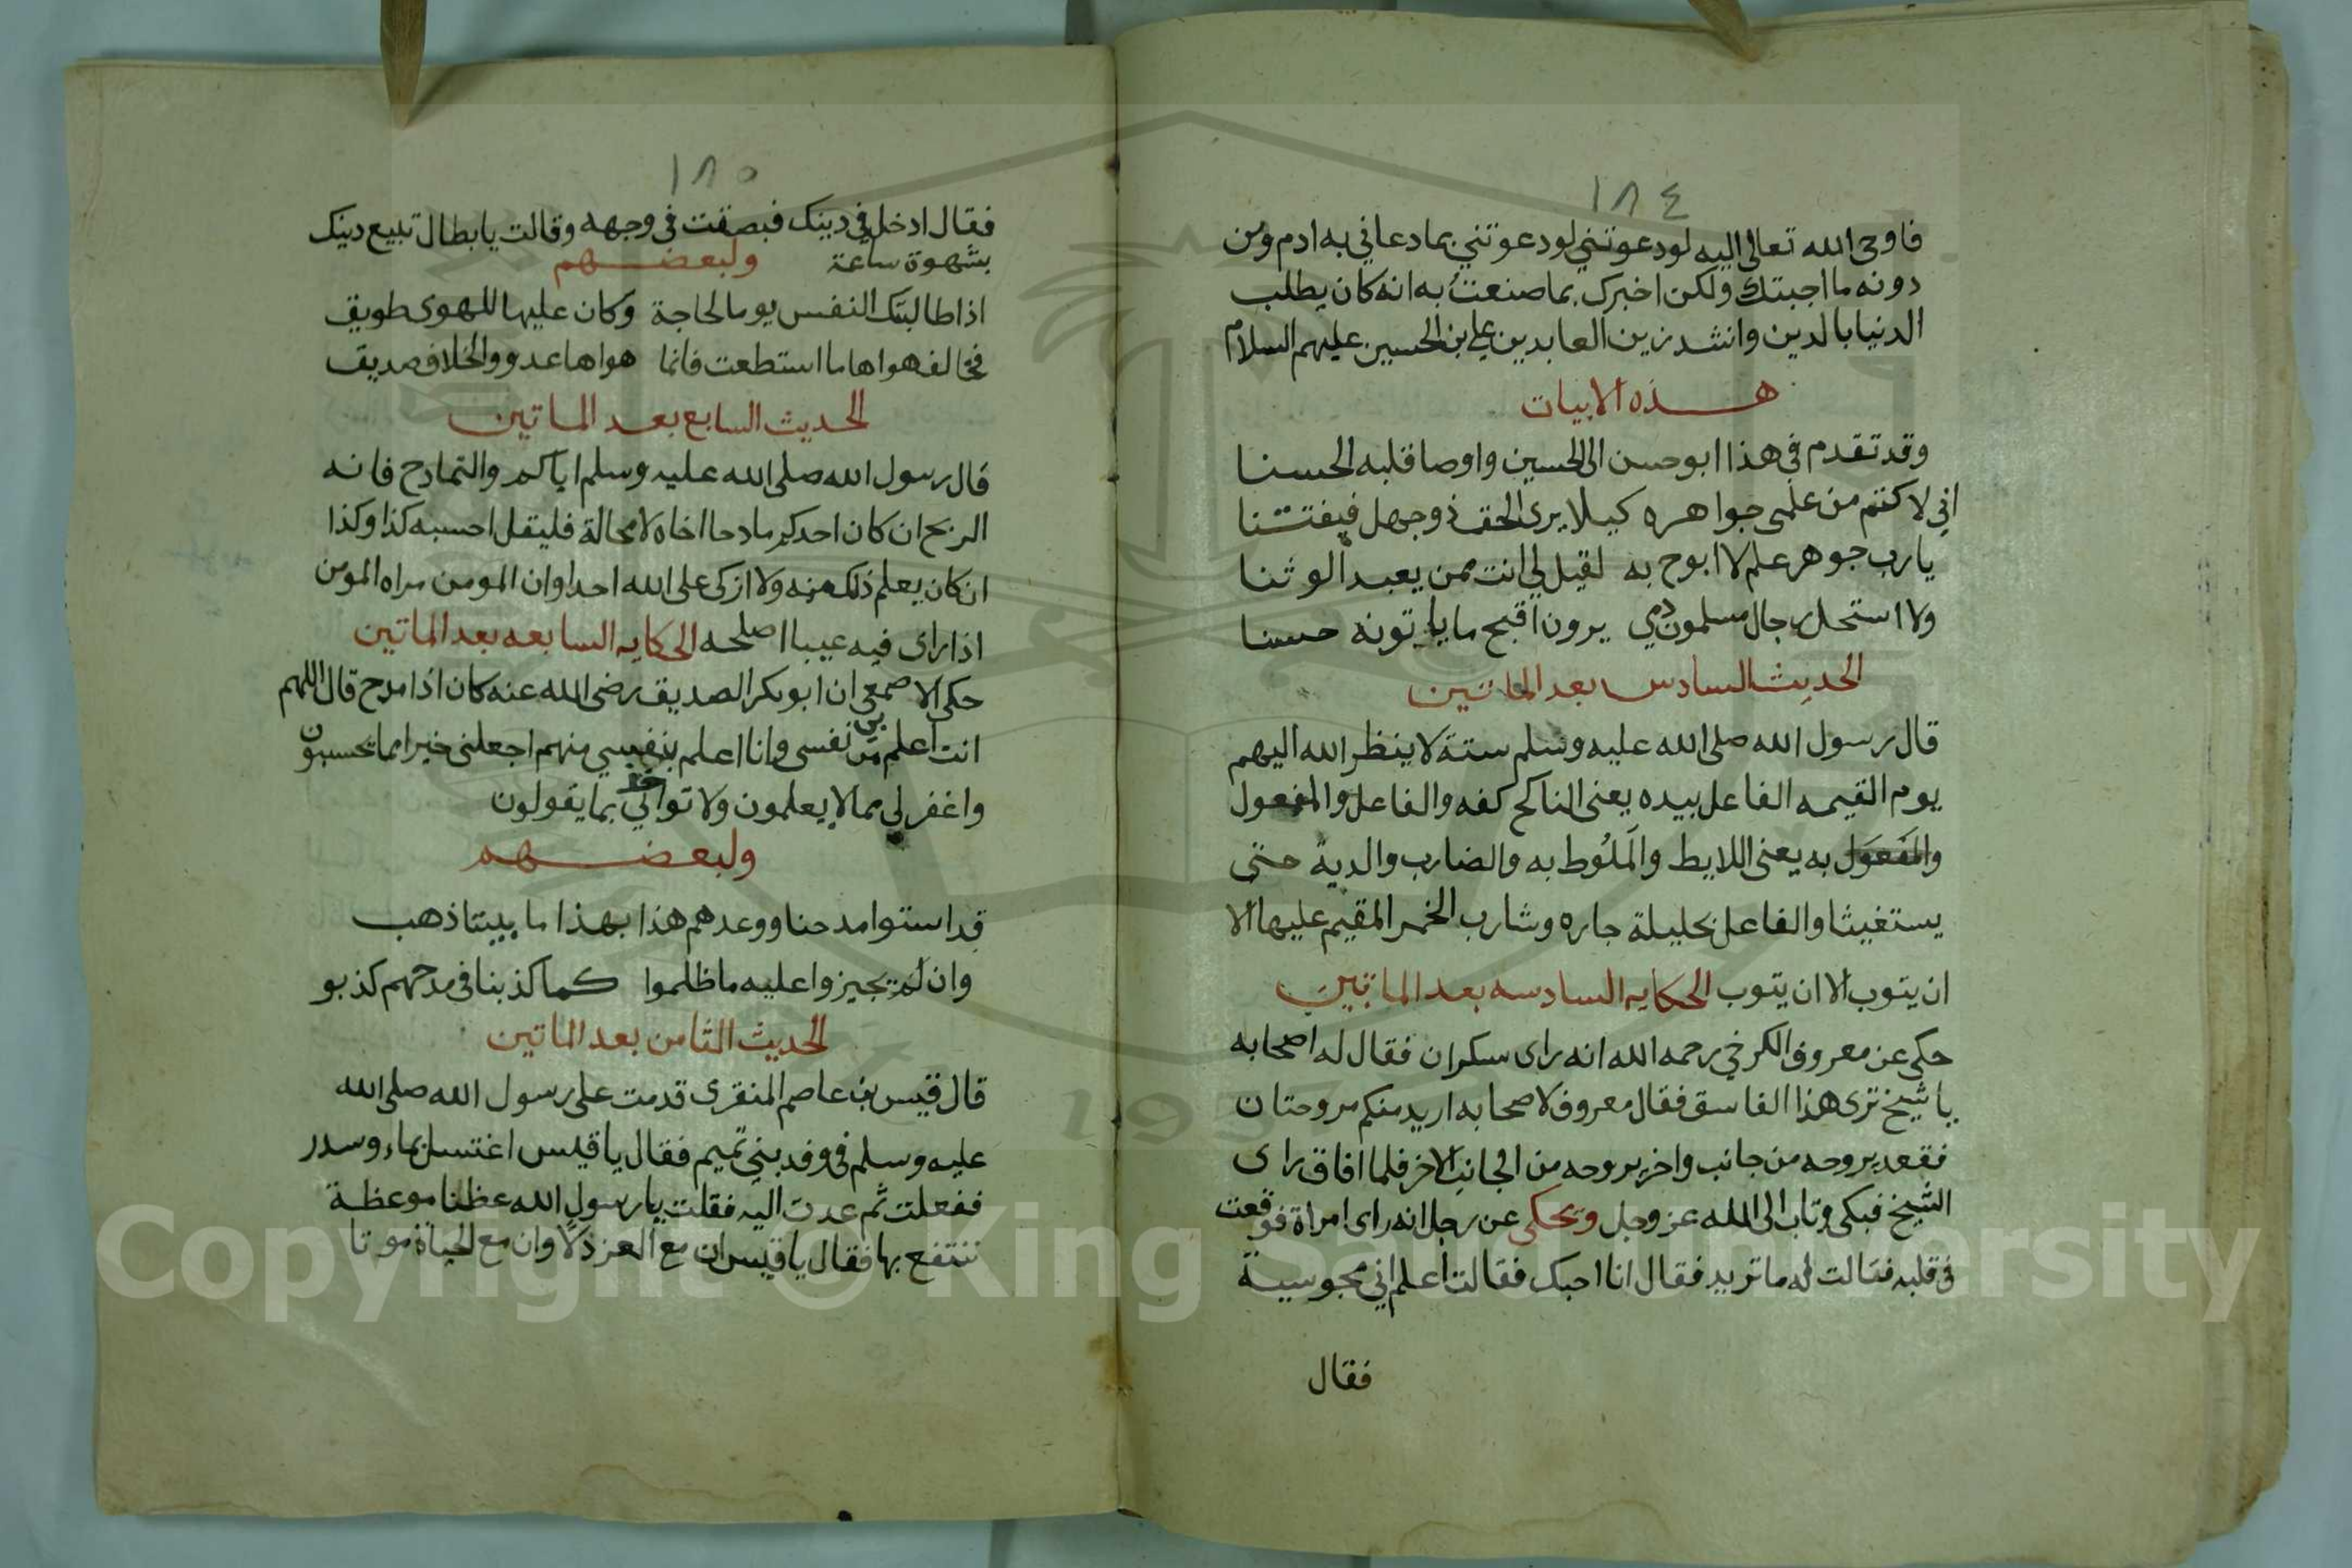 ١٨٤
فاوحى الله تعالى اليه لودعوتني لودعوتني بمادعاني به ادم ومن
دونه ما اجبتك ولكن اخبرك بما صنعت به انه كان يطلب
الدنيا بالدين وانشد زين العابدين علي ابن الحسين عليهم السلام
هذه الابيات
وقد تقدم في هذا ابو حسن الى الحسين واوصا قبله الحسنا
اني لاكتم من علمى جواهره كيلا يرى الحق ذو جهل فيفتتنا
يارب جوهر علم لا ابوح به لقيل لي انت ممن يعبد الوثنا
ولا استحل رجال مسلمون دمي يرون اقبح ما ياتونه حسنا
الحديث السادس بعد الماتين
قال رسول الله صلى الله عليه وسلم ستة لا ينظر الله اليهم
يوم القيمه الفاعل بيده يعنى الناكح كفه والفاعل والمفعول
والمفعول به يعنى اللايط والملوط به والضارب والديه حتى
يستغيثا والفاعل بحليلة جاره وشارب الخمر المقيم عليها الا
ان يتوب الا ان يتوب الحكايه السادسه بعد الماتين
حكى عن معروف الكرخي رحمه الله انه راى سكران فقال له اصحابه
يا شيخ ترى هذا الفاسق فقال معروف لاصحابه اريد منكم مروحتان
فقعد يروحه من جانب واخر يروحه من الجانب الاخر فلما افاق راى
الشيخ فبكى وتاب الى الله عز وجل ويحكى عن رجل انه راى امراة فوقعت
في قلبه فقالت له ما تريد فقال انا احبك فقالت اعلم اني مجوسية
فقال
١٨٥
فقال ادخل في دينك فبصقت في وجهه وقالت يا بطال تبيع دينك
بشهوة ساعة ولبعضهم
اذا طالبتك النفس يوما لحاجة وكان عليها للهوى طريق
فخالف هواها ما استطعت فانما هواها عدو والخلاف صديق
الحديث السابع بعد الماتين
قال رسول الله صلى الله عليه وسلم اياكم والتمادح فانه
الربح ان كان احدكم مادحا اخاه لا محالة فليقل احسبه كذا وكذا
ان كان يعلم ذلك منه ولا ازكى على الله احدا وان المومن مراه المومن
اذا راى فيه عيبا اصلحه الحكايه السابعه بعد الماتين
حكى الاصمعي ان ابو بكر الصديق رضى الله عنه كان اذا مدح قال اللهم
انت اعلم بي من نفسى وانا اعلم بنفسي منهم اجعلنى خيرا مما يحسبون
واغفر لي مما لا يعلمون ولا تواخذني بما يقولون
ولبعضهم
قد استوا مدحنا ووعدهم هذا بهذا ما بيننا ذهب
وان لم يجيزوا عليه ما ظلموا كما كذبنا في مدحهم كذبو
الحديث الثامن بعد الماتين
قال قيس بن عاصم المنقرى قدمت على رسول الله صلى الله
عليه وسلم في وفد بني تميم فقال يا قيس اغتسل بماء وسدر
ففعلت ثم عدت اليه فقلت يا رسول الله عظنا موعظة
ننتفع بها فقال يا قيس ان مع العز ذلا وان مع الحياة موتا
Copyright © King Saud University
1957